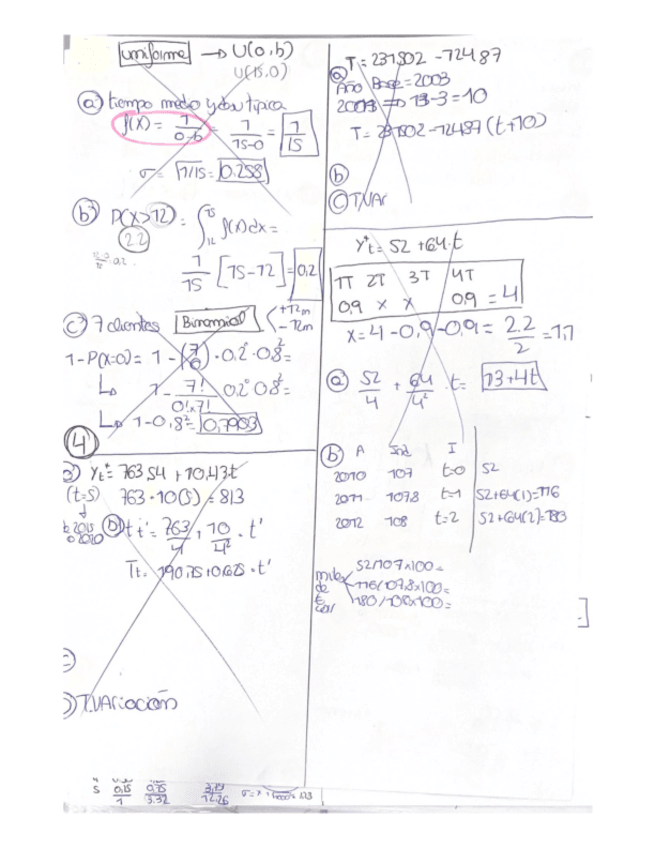 uniforme → U(0,b)
U(15,0)
a) tiempo medio y desv típica
f(x) = 1/0-b = 1/15-0 = 1/15
σ = √1/15 = 0.258
b) P(X>12) = ∫ f(x)dx =
2.2
1/15 [15-12] = 0,2
c) 7 clientes Binomial +12m
-12m
1-P(x=0) = 1 - (7 0) · 0.2° · 0.8² =
↳ 1 - 7!/0!x7! 0.2° 0.8² =
↳ 1-0,8² = 0,7903
4
3) Yt* = 763,54 + 10,43t
(t=5) 763 · 10(5) = 813
b) t t' = 763/4 + 10/4² · t'
Tt = 190,75 + 0,625 · t'
T.VARIACIÓN
S 0,15 0,75
1 3.32 12.26
T = 231802 - 72487
a) Año Base = 2003
2013 ⇒ 13-3 = 10
T = 231802 - 72487 (t+10)
b)
c) T.VAR
Y*t = 52 + 64·t
1T 2T 3T 4T
0,9 x x 0.9 = 4
x = 4 - 0,9 - 0,9 = 2.2/2 = 1,1
a) 52/4 + 64/4² · t = 13+4t
b) A Ind I
2010 107 t=0 52
2011 107.8 t=1 52+64(1)=116
2012 108 t=2 52+64(2)=180
52/107x100=
miles 116/107,8x100=
de 180/108x100=